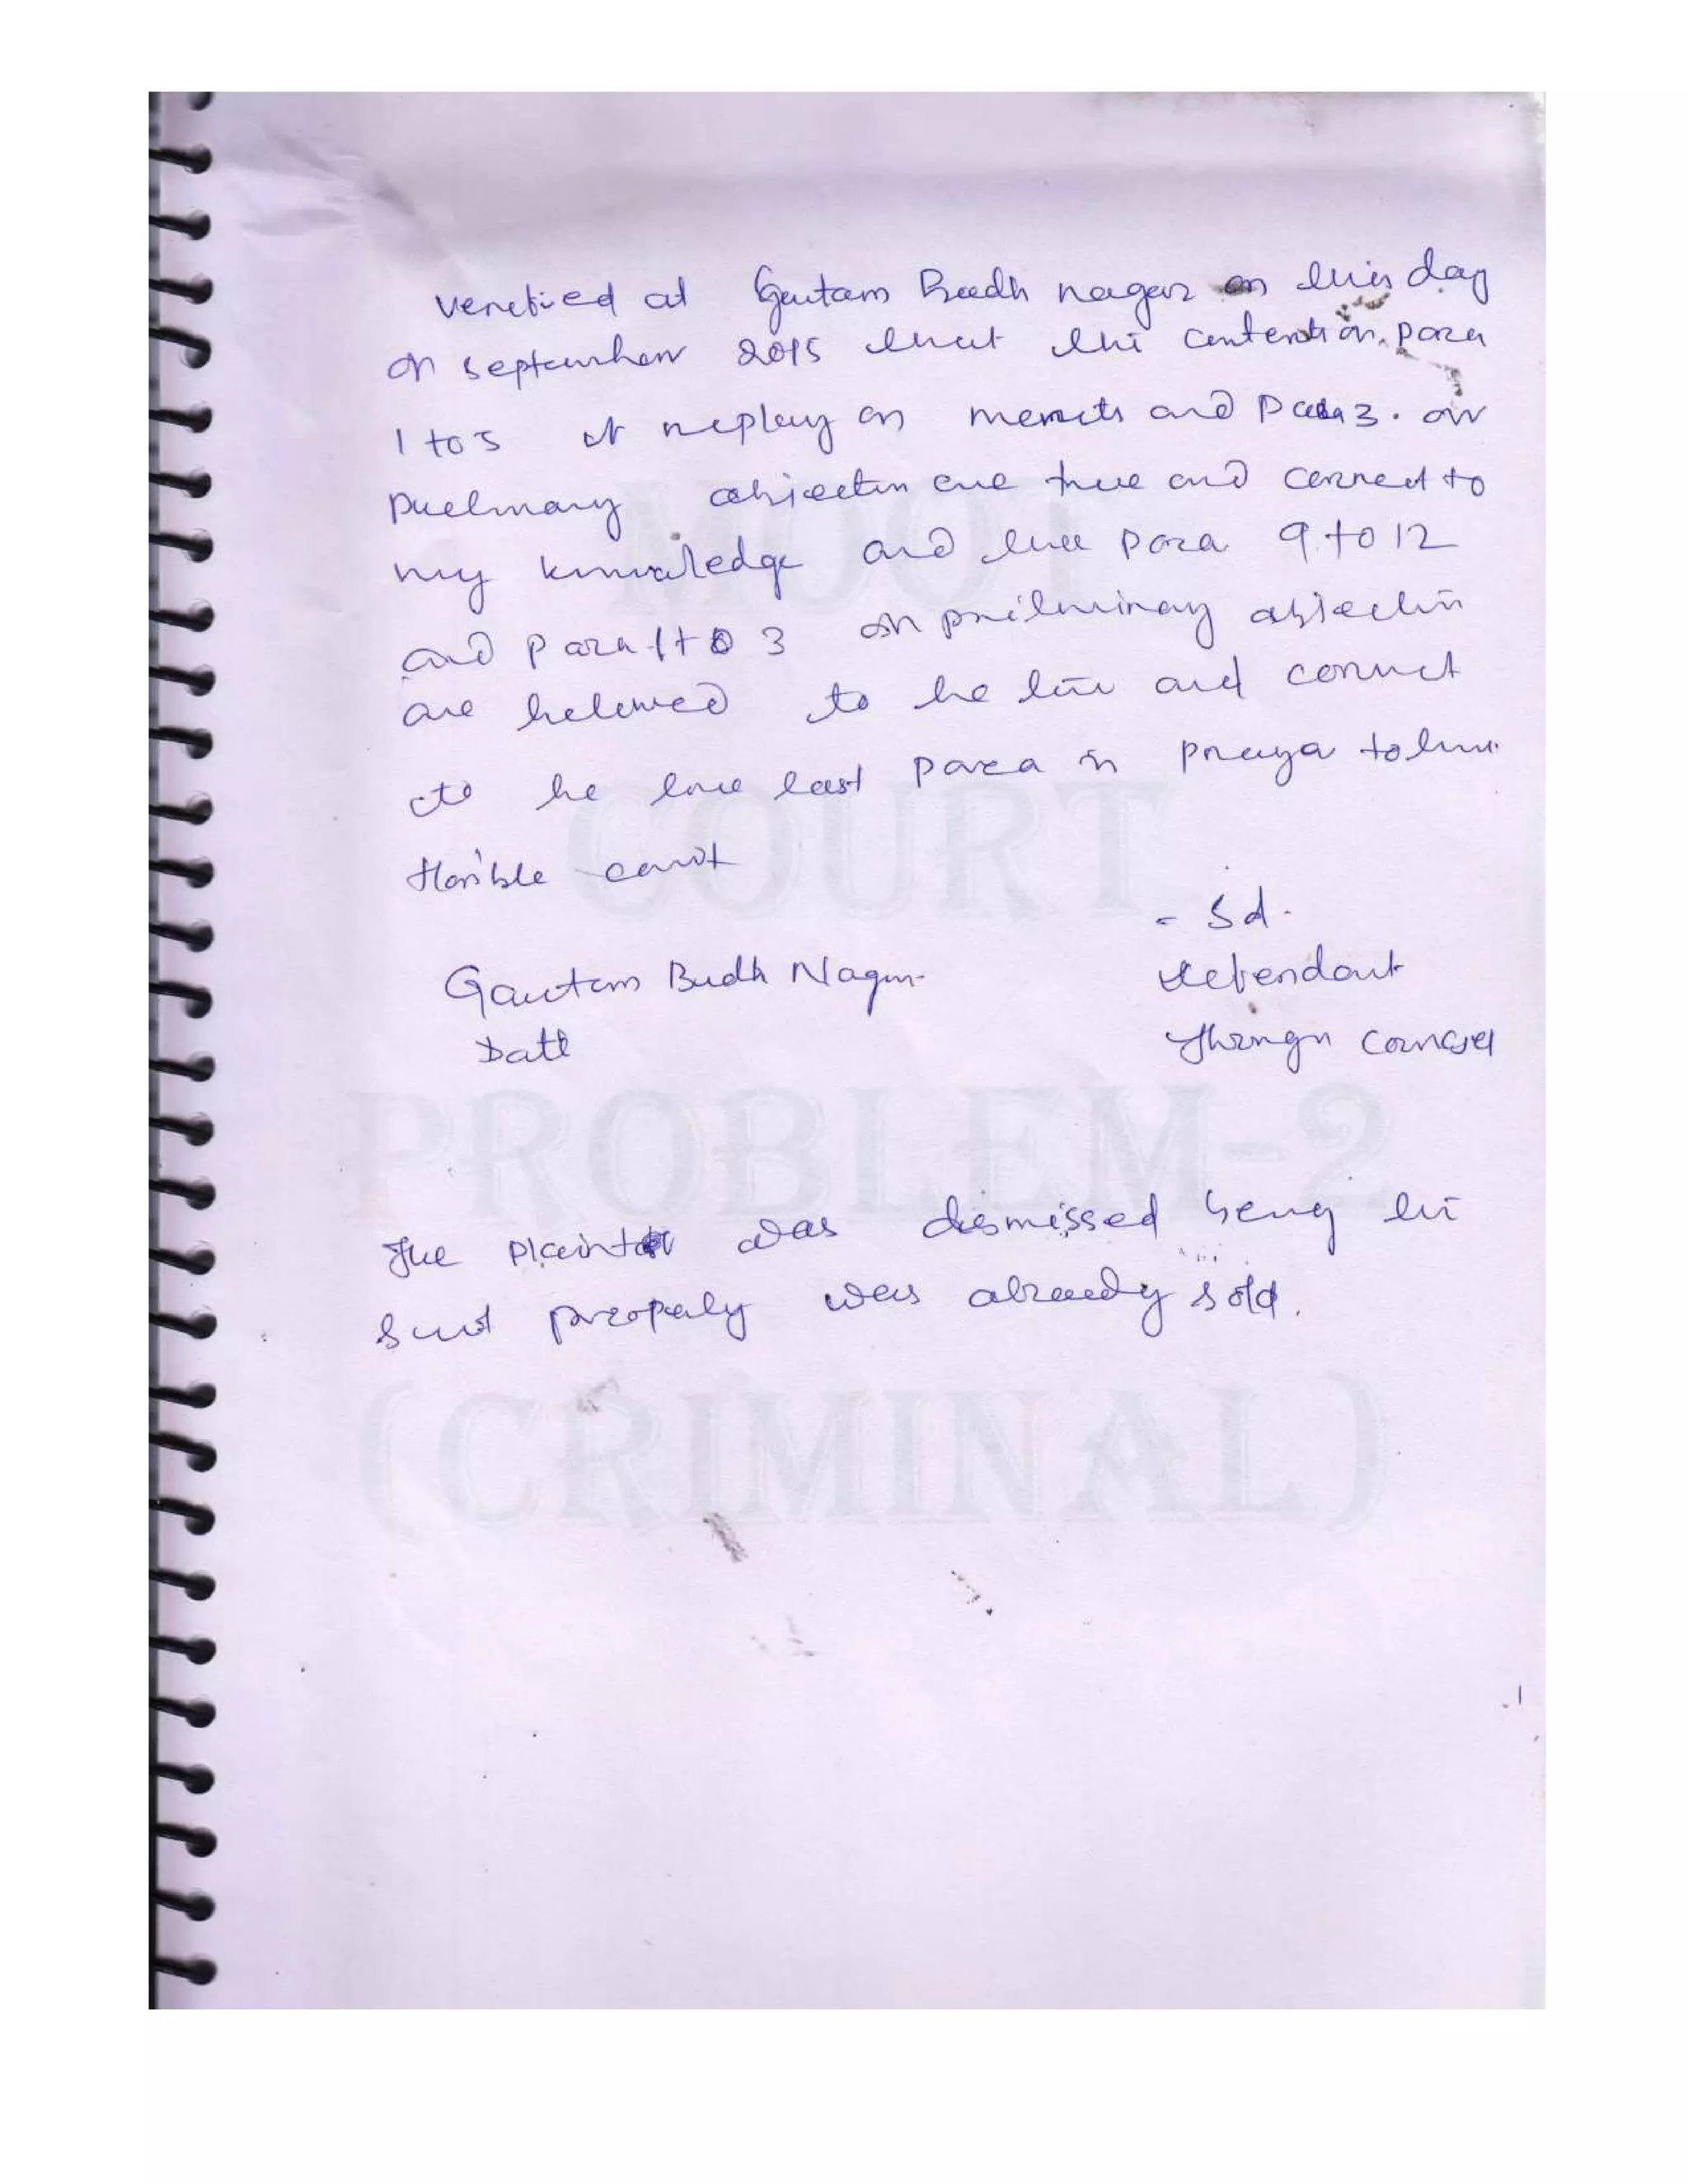 Verified at Gautam Budh nagar on this day
of september 2015 that the contention para
1 to 5 of reply on merits and Para 3. of
prelimary objection are true and correct to
my knowledge and the para 9 to 12
and Para 1 to 3 of preliminary objection
are believed to be true and correct
to be true last para is praya to this
Hon'ble court
- Sd -
Gautam Budh Nagar
Defendant
Date
Through Counsel
The plaint was dismissed being the
Suit property was already sold.
MOOT
COURT
PROBLEM-2
(CRIMINAL)